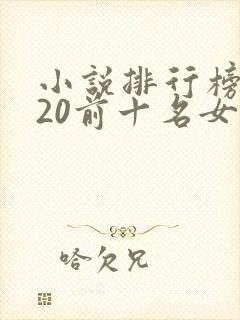 小說排行榜
20前十名女
哈欠兄